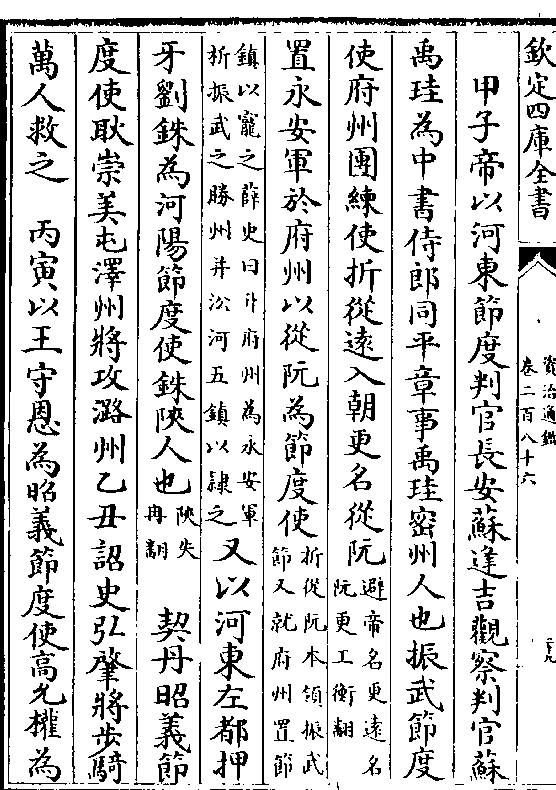 欽定四庫全書
資治通鑑
卷二百八十六
甲子帝以河東節度判官長安蘇逢吉觀察判官蘇
禹珪為中書侍郎同平章事禹珪密州人也振武節度
使府州團練使折從遠入朝更名從阮
避帝名更遠名
阮更工衡翻
置永安軍於府州以從阮為節度使
折從阮本領振武
節又就府州置節
鎮以寵之薛史曰升府州為永安軍
析振武之勝州并㳂河五鎮以隷之
又以河東左都押
牙劉銖為河陽節度使銖陝人也
陝失
冉翻
契丹昭義節
度使耿崇美屯澤州將攻潞州乙丑詔史弘肇將步騎
萬人救之　丙寅以王守恩為昭義節度使高允權為